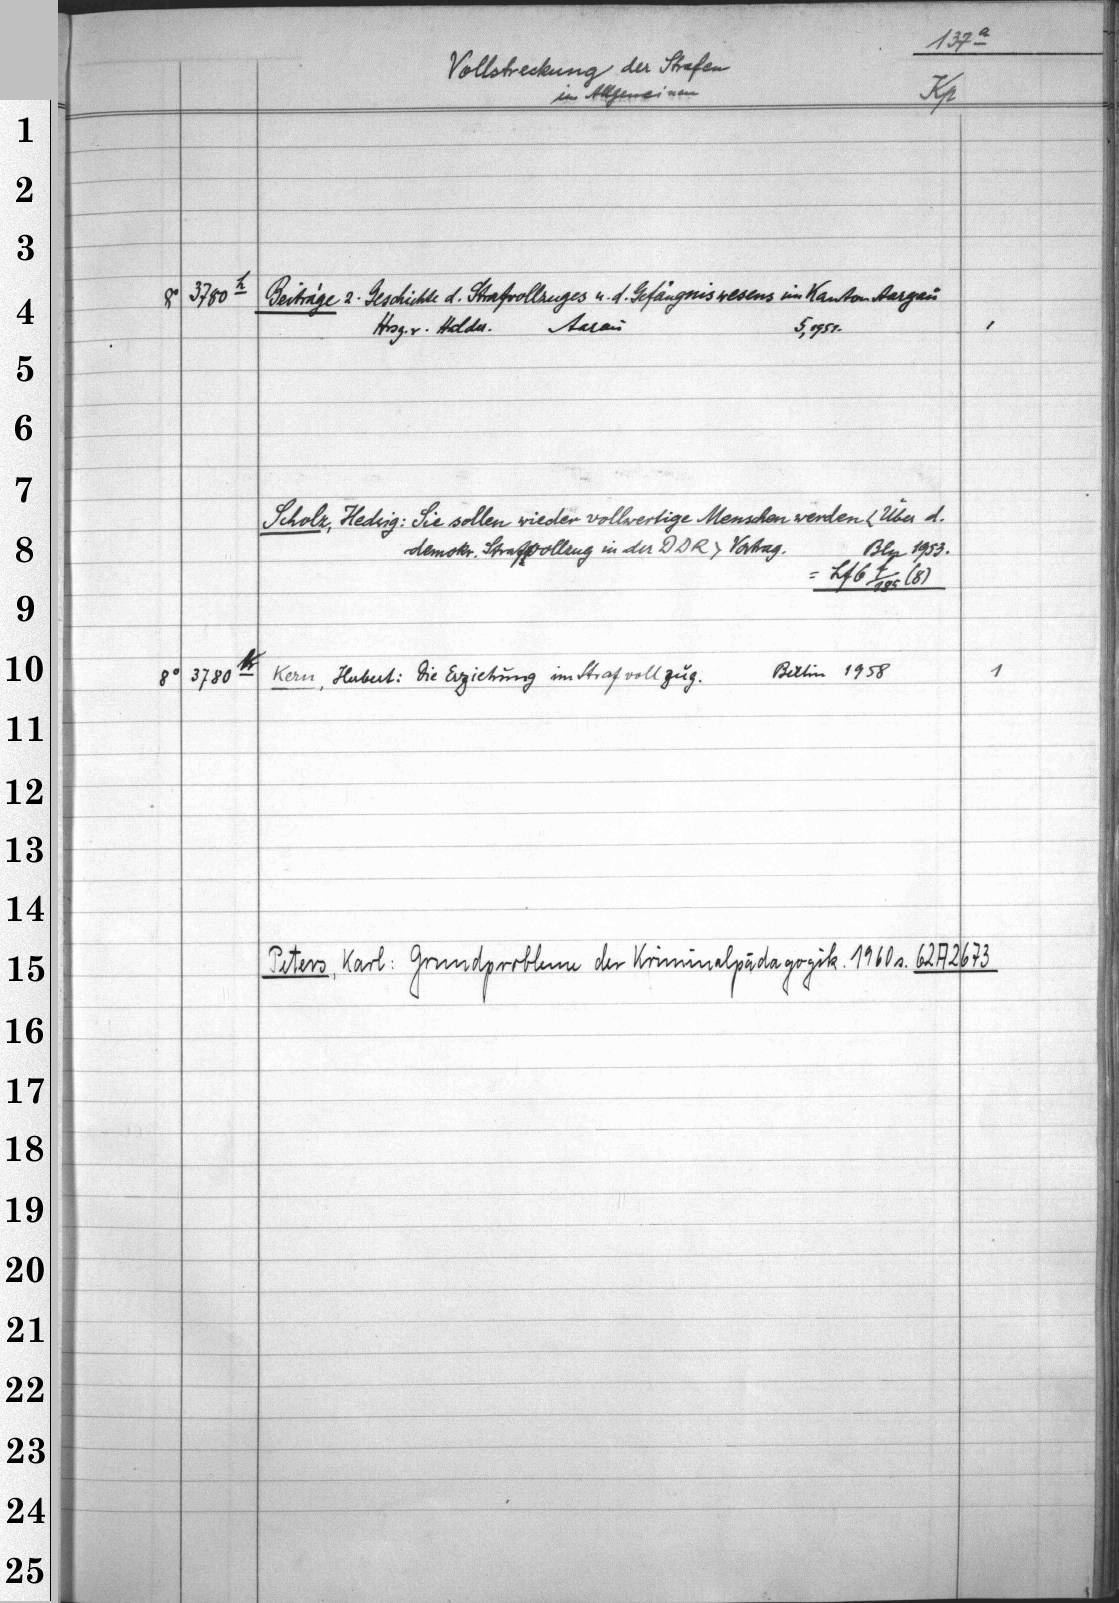 137a
Vollstreckung der Strafen
im Allgemeinen
Kp
1
2
3
8° 3780 h Beiträge z. Geschichte d. Strafvollzuges u. d. Gefängniswesens im Kanton Aargau
4
Hrsg. v. Halder. Aarau 5, 1951. 1
5
6
7
Scholz, Hedwig: Sie sollen wieder vollwertige Menschen werden < Über d.
8
demokr. Strafvollzug in der DDR > Vortrag. Bln 1953.
= Lf 6 (8)
9
10
8° 3780 Kern, Hubert: Die Erziehung im Strafvollzug. Berlin 1958 1
11
12
13
14
15
Peters, Karl: Grundprobleme der Kriminalpädagogik. 1960 s. 62A2673
16
17
18
19
20
21
22
23
24
25